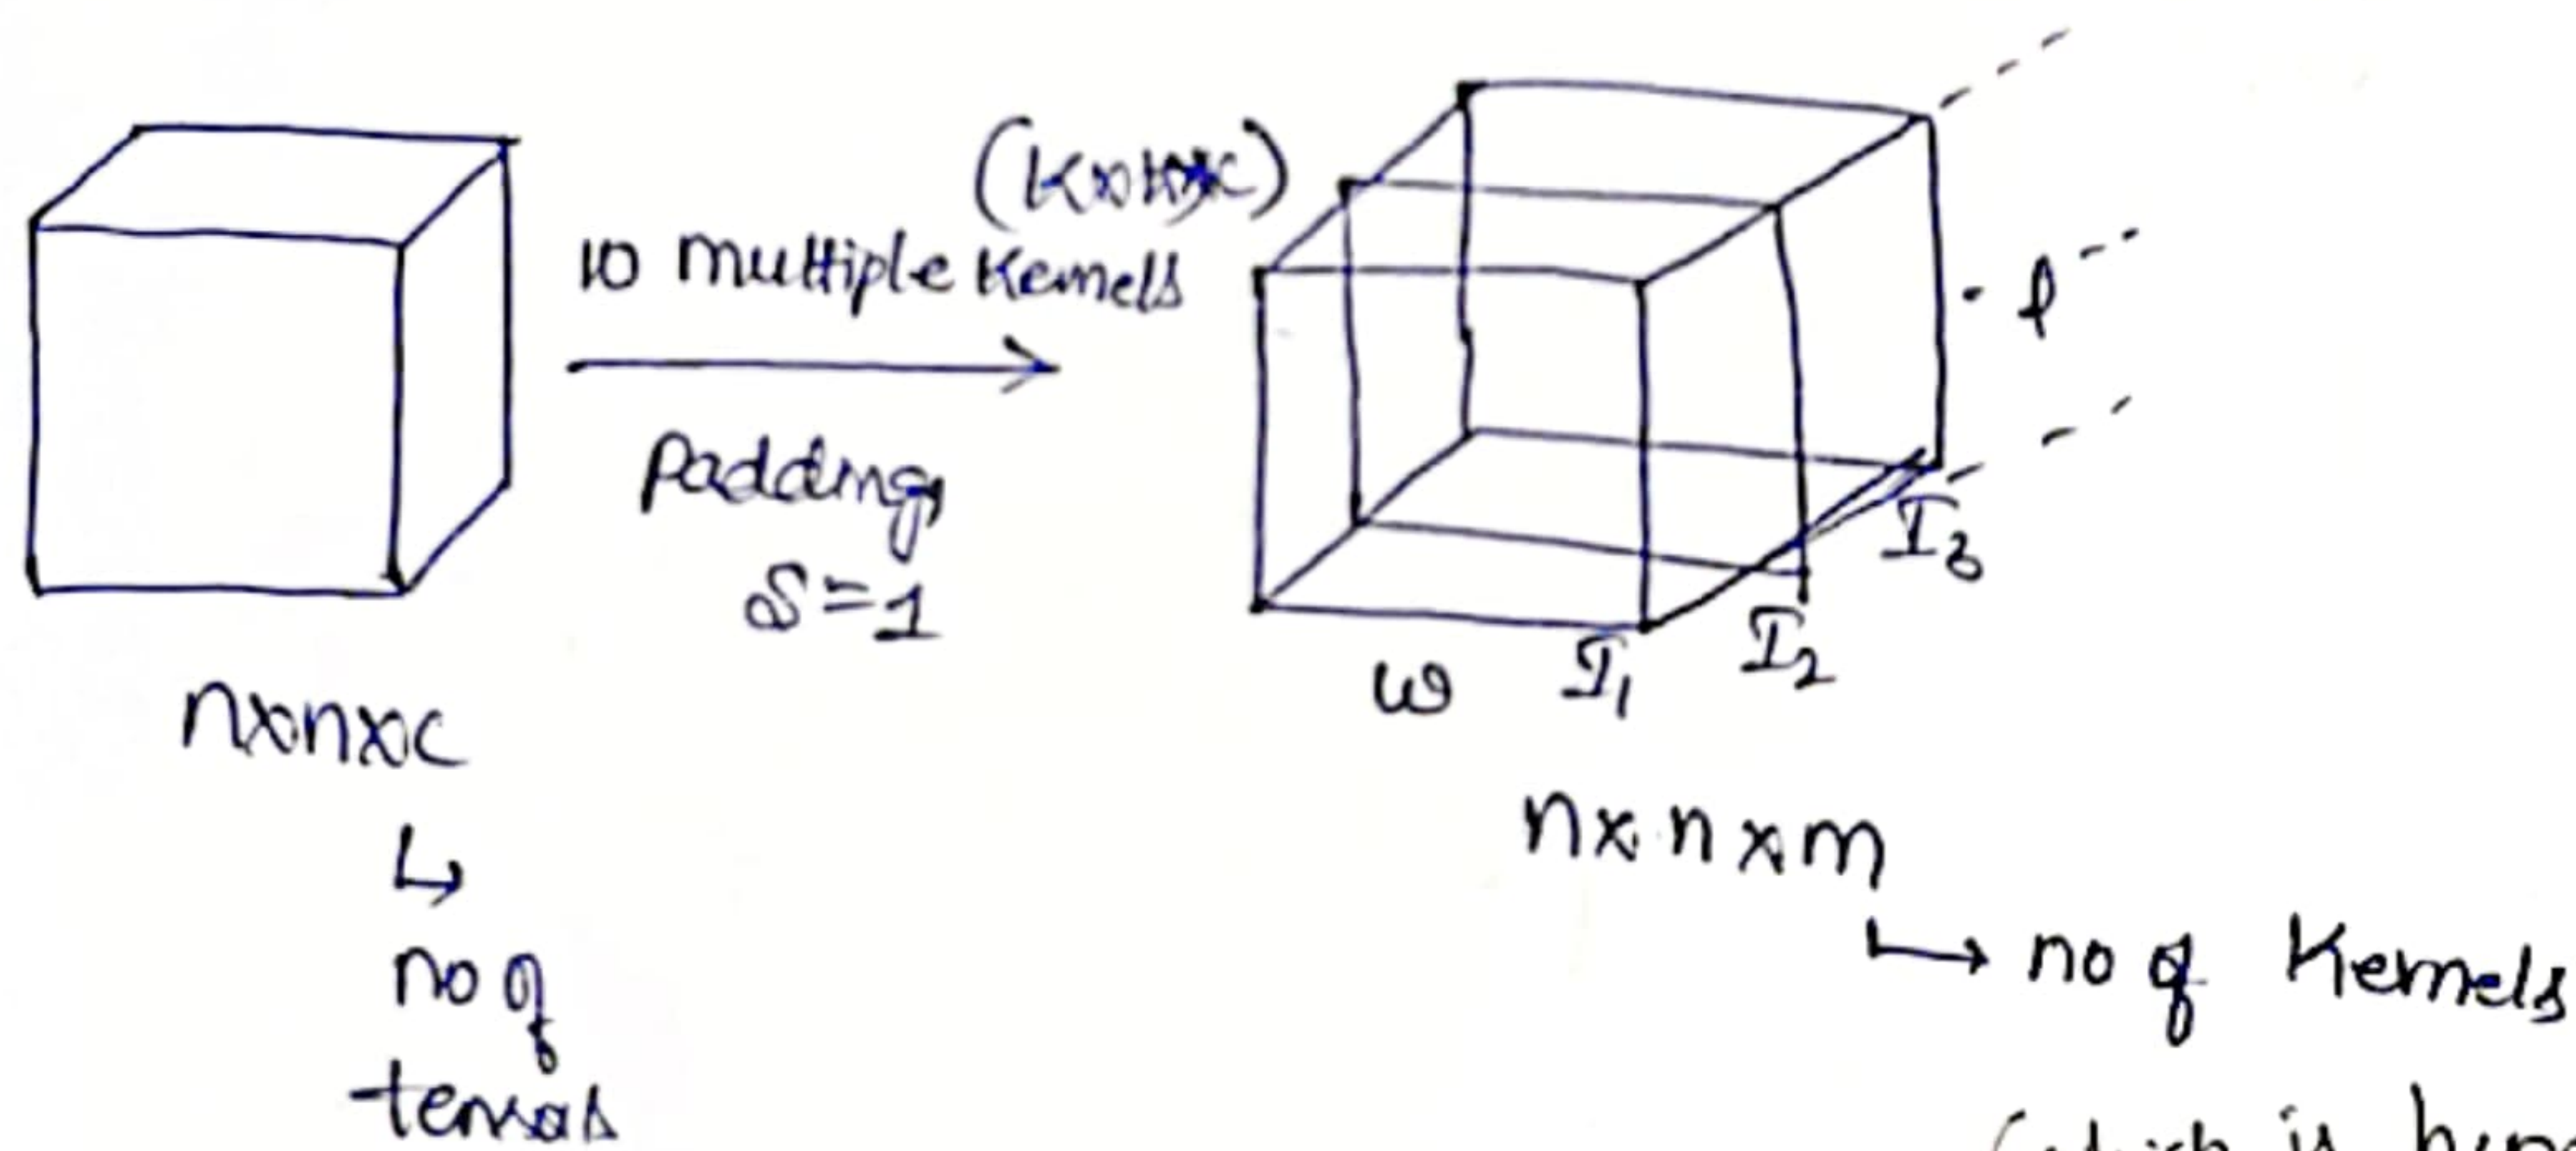 (K×K×C)
10 multiple Kernels
Padding,
S=1
n×n×c
↳
no of
tensors
l
I3
I2
I1
w
n×n×m
↳ no of Kernels
(which is